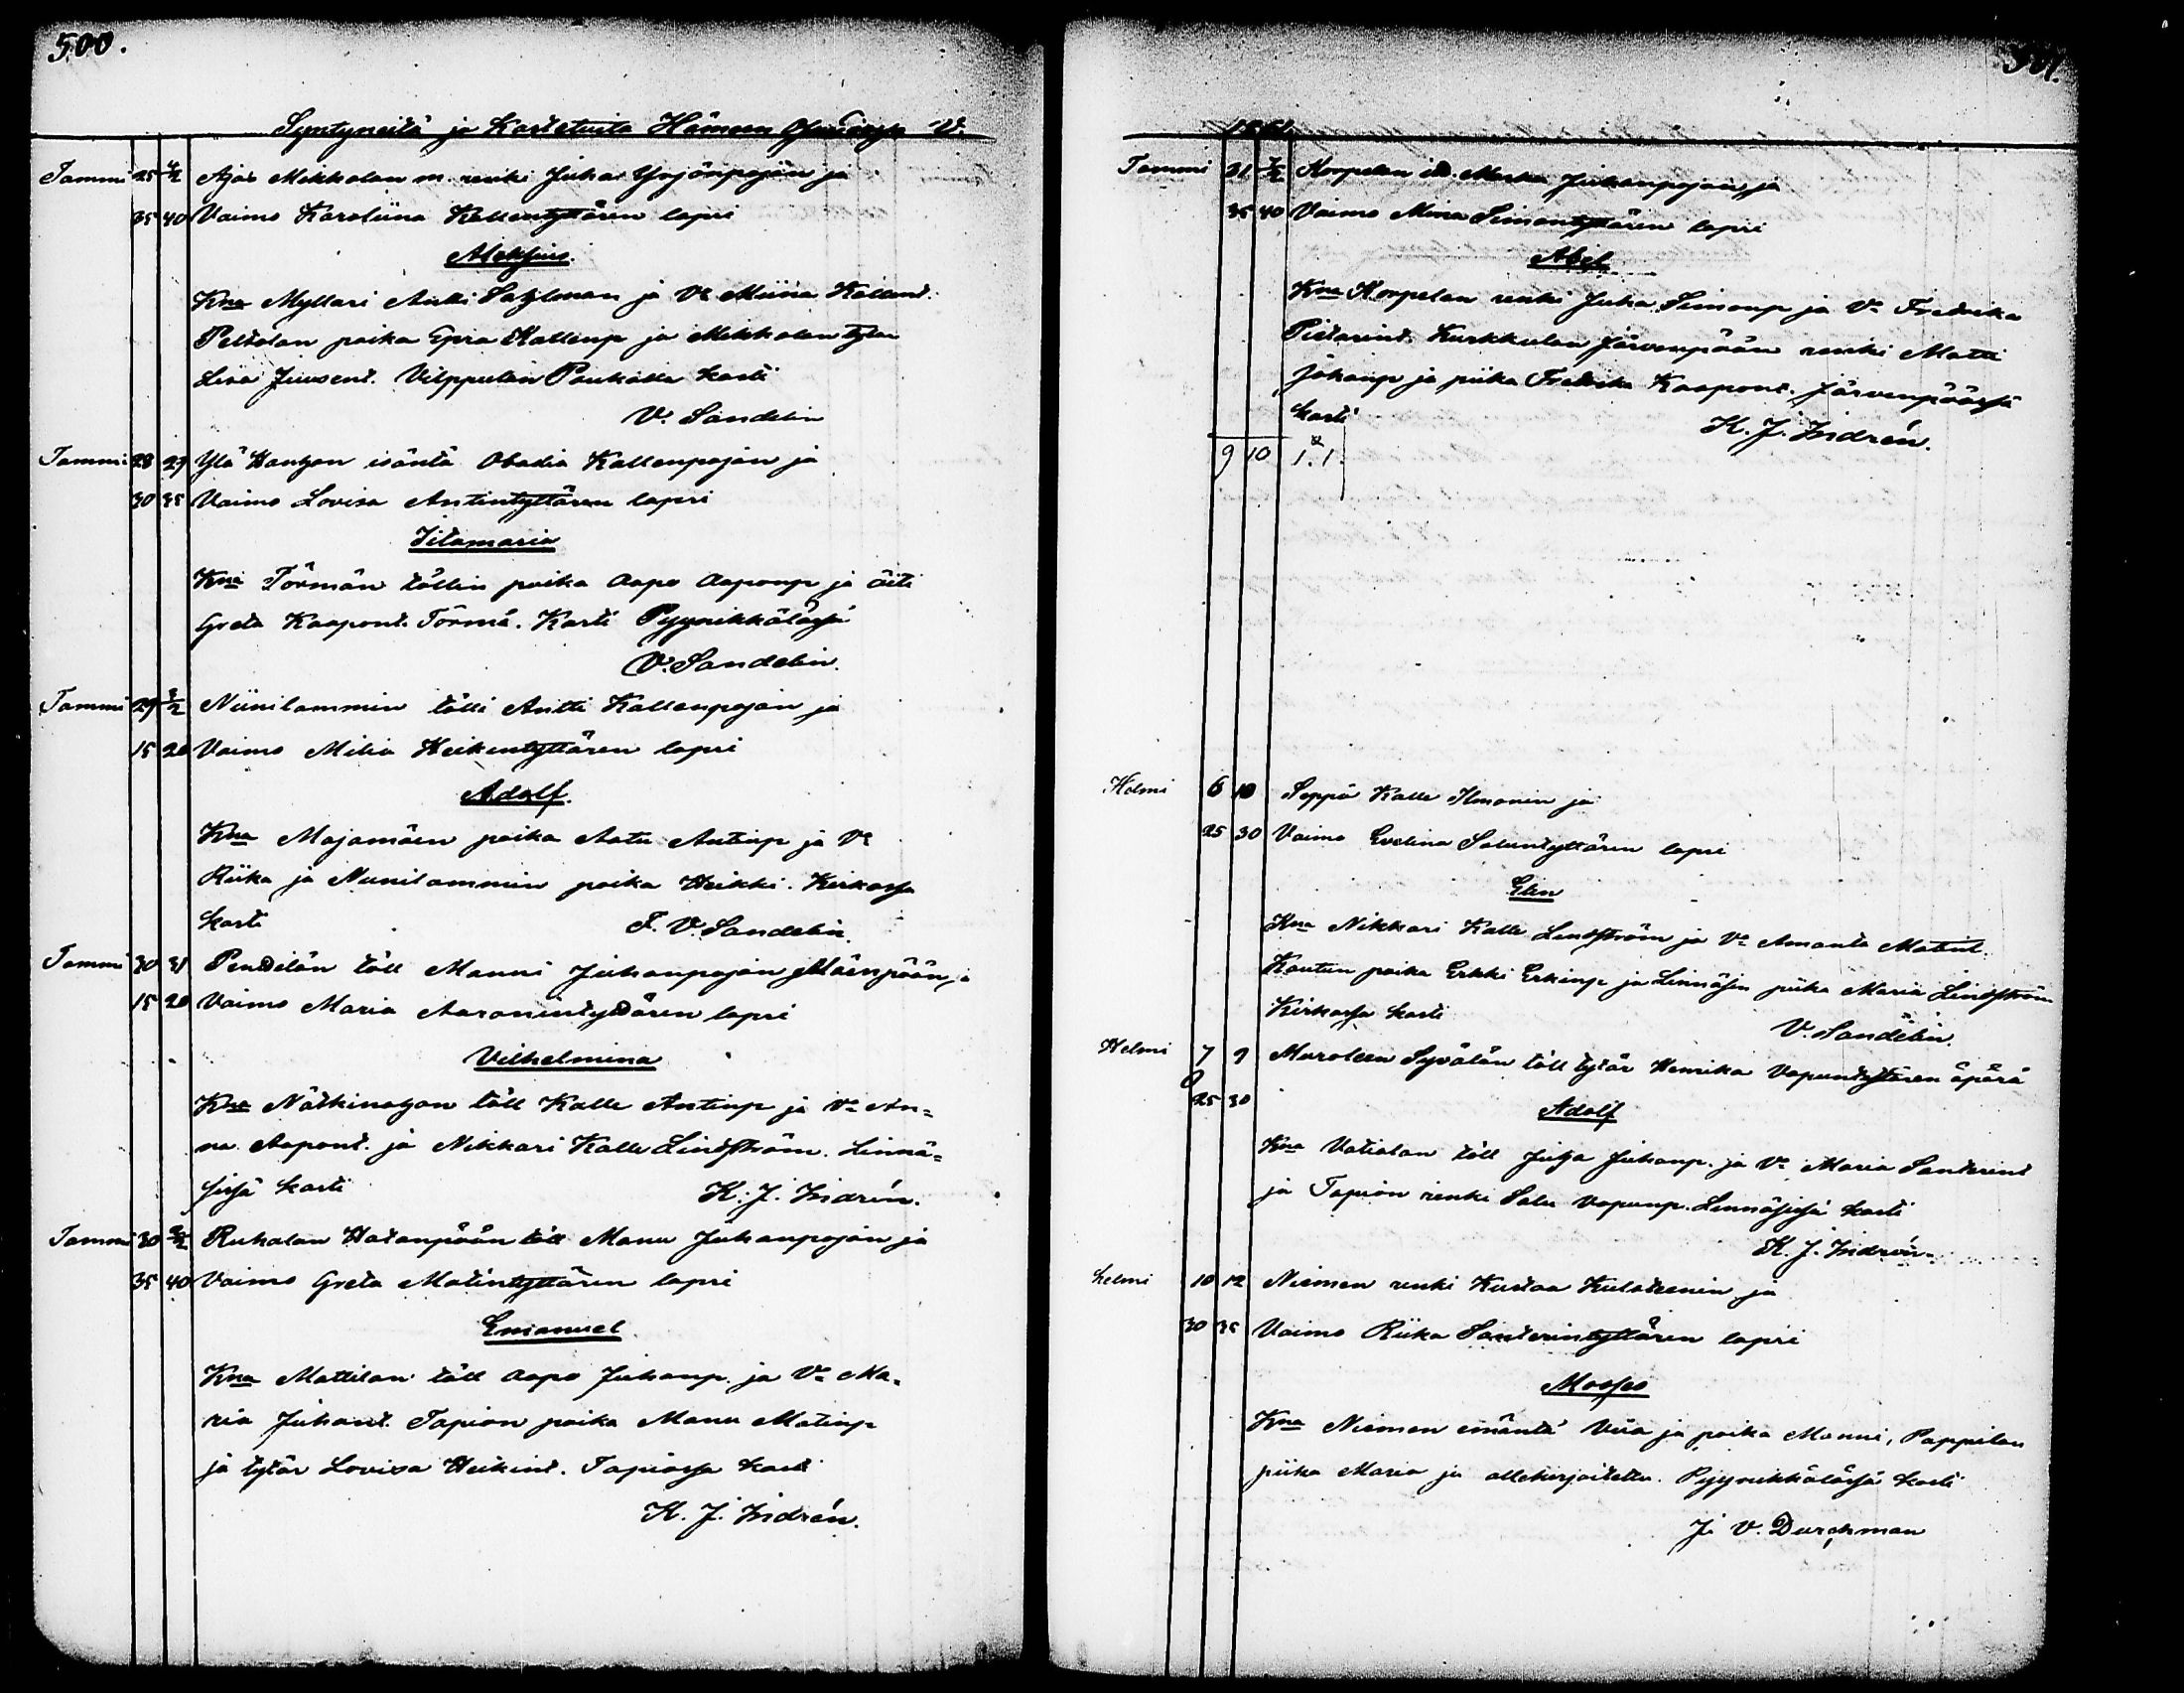 500.
Syntyneitä ja Kastetuita Hämeen V.
Tammi 25 4/2 Ajos Mikkolan m. renki Juha Yrjönpojan ja
35 40 Vaimo Karoliina Kallentyttären lapsi
Aleksius.
Kna Myllari Antti Sahlman ja Vo Miina Kallent.
Peltolan poika Epra Kallenp ja Mikkolan tytär
Lisa Juusent. Vilppulan Poukalla kasti
V. Sandelin
Tammi 28 29 Ylä Hangon isäntä Obadia Kallenpojan ja
30 35 Vaimo Lovisa Antintyttären lapsi
Iitamaria
Kna Törmän töllin poika Aapo Aaponp ja äiti
Greta Kaapont. Törmä. Kasti Pyynikkälässä
V. Sandelin.
Tammi 29 3/2 Niinilammin tölli Antti Kallenpojan ja
15 20 Vaimo Milia Heikintyttären lapsi
Adolf.
Kna Majamäen poika Aatu Antinp ja Vo
Riika ja Niinilammin poika Heikki. Kirkossa
kasti F. V. Sandelin.
Tammi 30 31 Penttilän töll Manni Juhanpojan Mäenpään ja
15 20 Vaimo Maria Aaronintyttären lapsi
Vilhelmina
Kna Nätkinahon töll Kalle Antinp ja Vo An=
na Aapont. ja Nikkari Kalle Lindström. Linnä=
sissä kasti K. J. Indrén.
Tammi 30 2/2 Ruhalan Hatanpään töll Manu Juhanpojan ja
35 40 Vaimo Greta Matintyttären lapsi
Emanuel
Kna Mattilan töll Aapo Juhanp. ja Vo Ma=
ria Juhant. Tapion poika Manu Matinp
ja tytär Lovisa Heikint. Tapiossa kasti
K. J. Indrén.
501.
Tammi 31 7/2 Korpelan Juhanpojan ja
35 40 Vaimo Mina Simontyttären lapsi
Abel
Kna Korpelan renki Juha Simonp ja Vo Fredrika
Pietarint. Kurkkulan Järvenpään renki Matti
Johanp ja piika Fredrika Kaapont. Järvenpäässä
kasti K. J. Indrén.
9 10 1. 1
Helmi 6 10 Seppä Kalle Ilmonin ja
25 30 Vaimo Evelina Saluntyttären lapsi
Elin
Kna Nikkari Kalle Lindström ja Vo Amanta Matint.
Kautun poika Erkki Erkinp ja Linnäsin piika Maria Lindström
Kirkossa kasti V. Sandelin.
Helmi 7 9 Muroleen Syvälän töll tytär Henrika Vapuntyttären äpärä
25 30 Adolf
Kna Vatialan töll Juha Juhanp. ja Vo Maria Santerint
ja Tapion renki Salu Vapunp. Linnäsissä kasti
K. J. Indrén.
Helmi 10 12 Niemen renki Kustaa Kuloteenin ja
30 35 Vaimo Riika Santerintyttären lapsi
Mooses
Kna Niemen emäntä Viia ja poika Manni, Pappilan
piika Maria ja allekirjoitettu. Pyynikkälässä kasti
J. V. Durchman